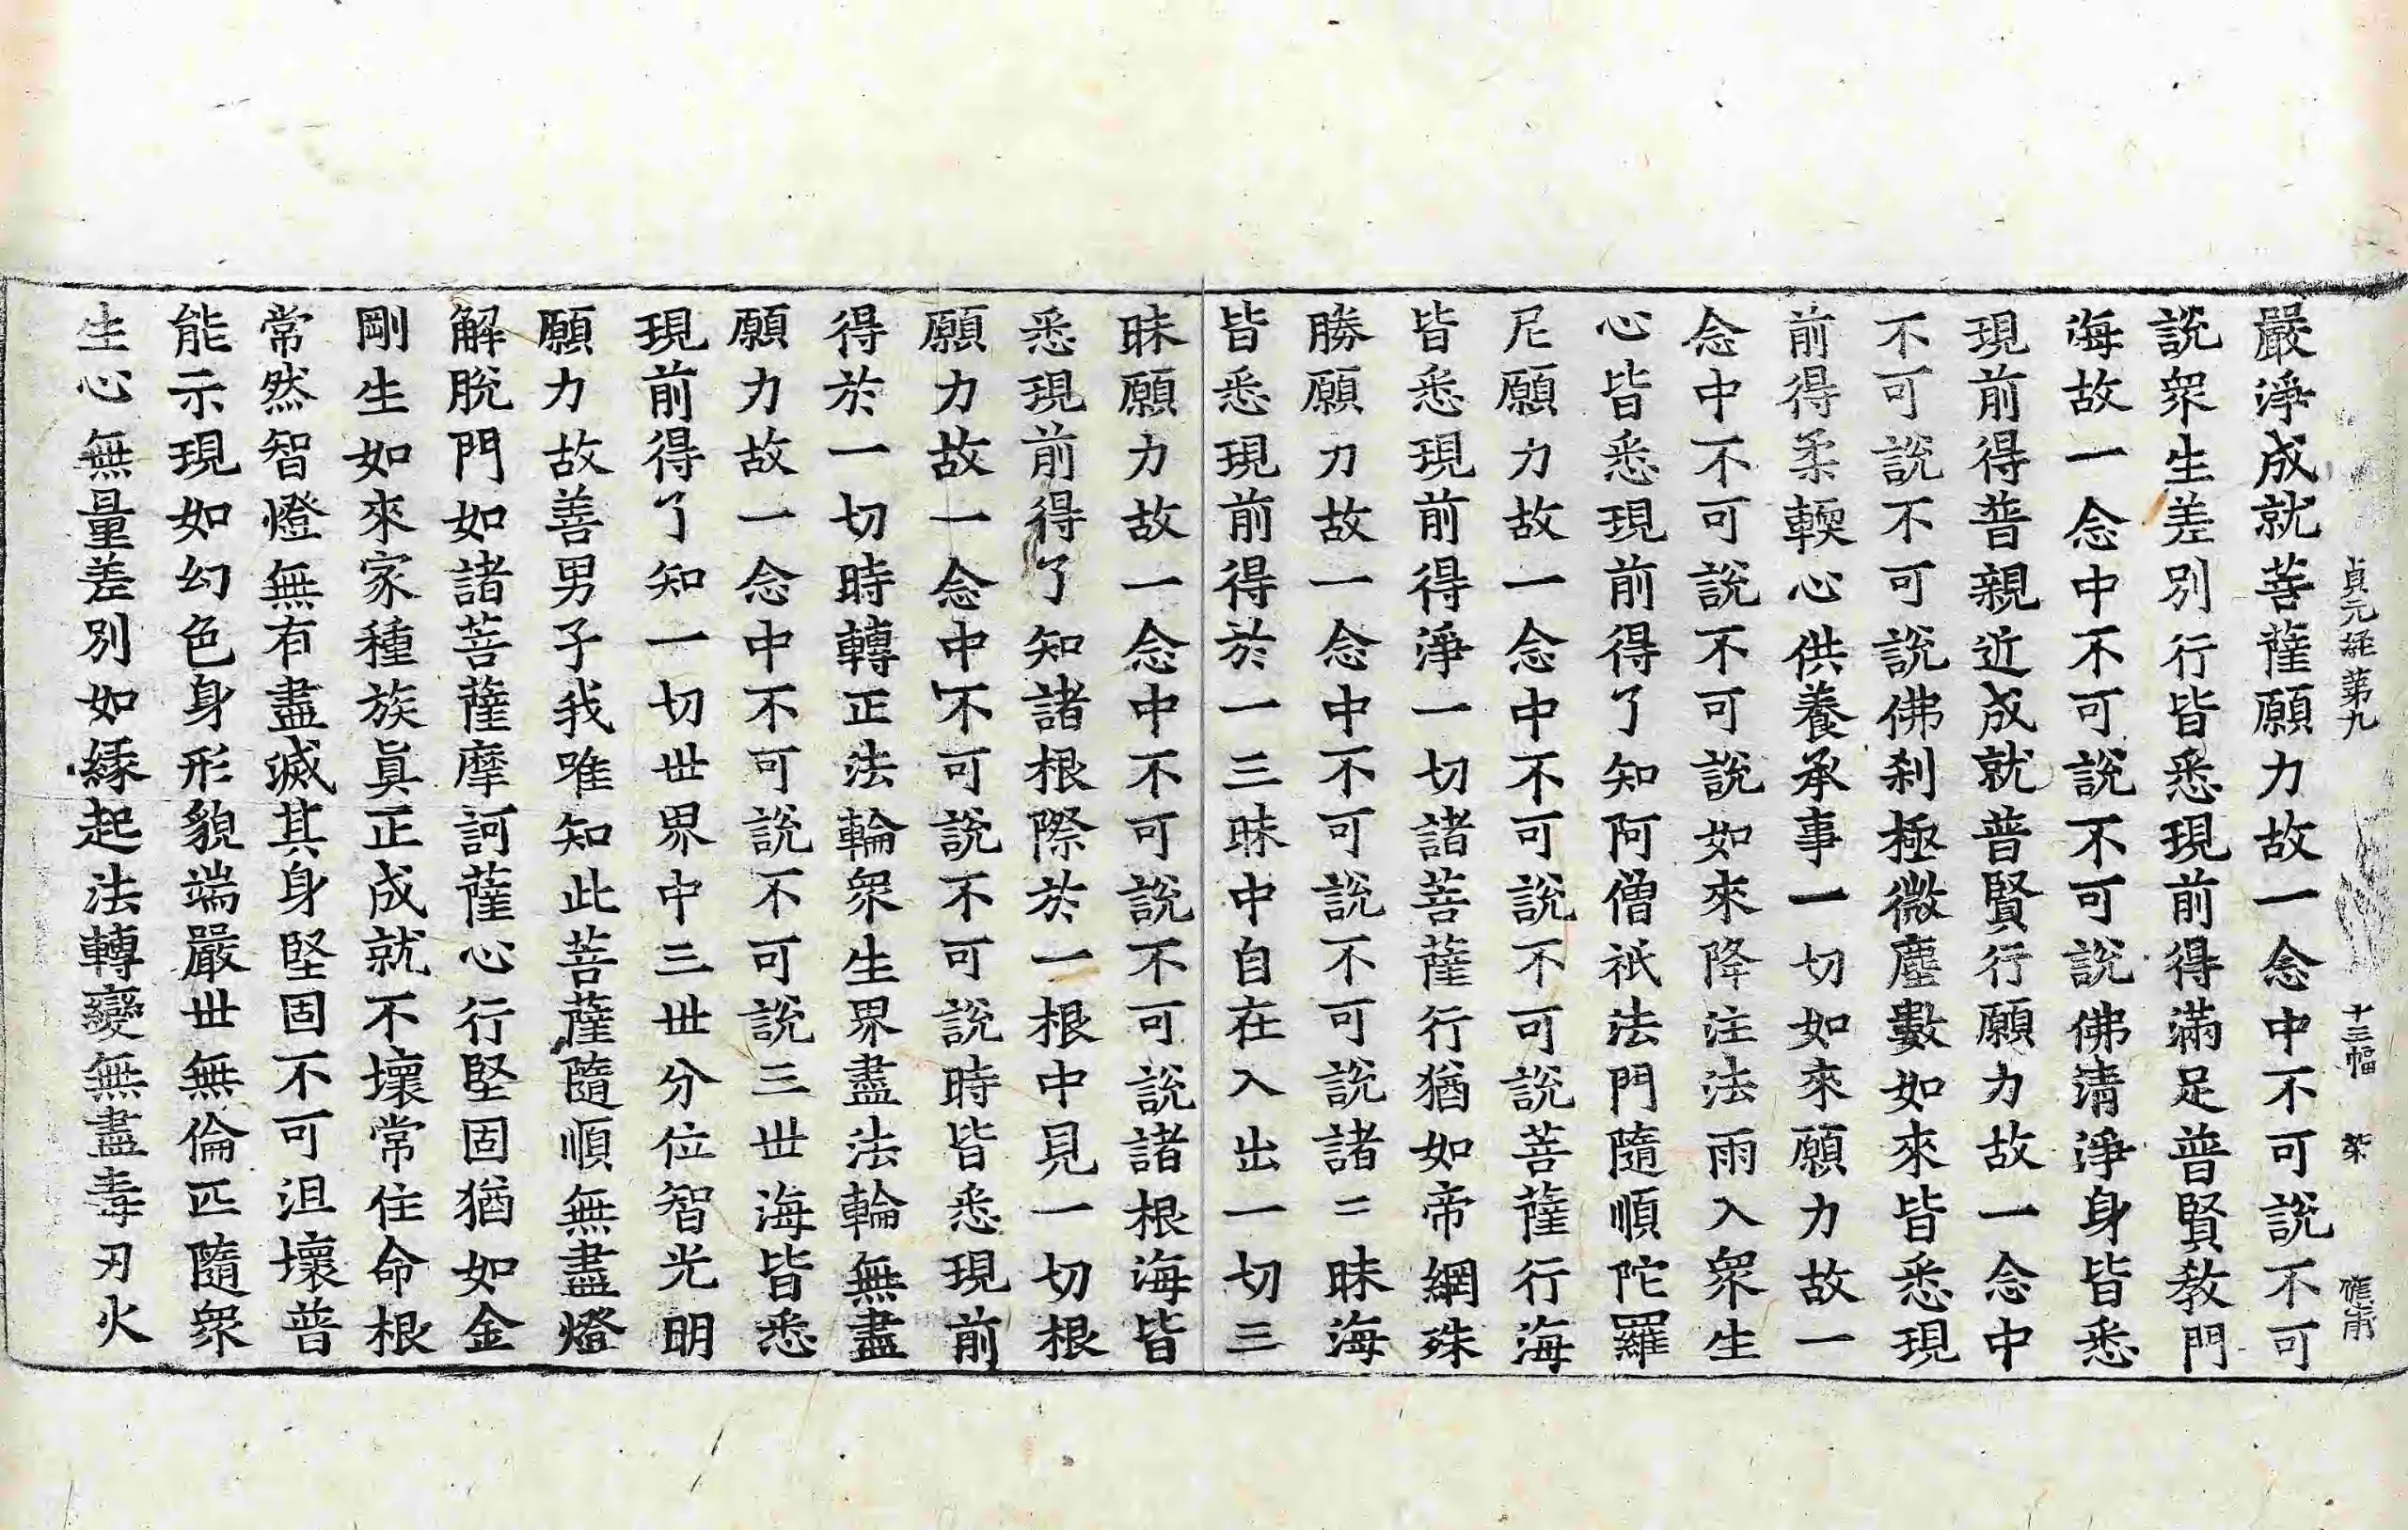 貞元経第九 十三幅
嚴淨成就菩薩願力故一念中不可說不可
說衆生差別行皆悉現前得滿足普賢教門
海故一念中不可說不可說佛清淨身皆悉
現前得普親近成就普賢行願力故一念中
不可說不可說佛刹極微塵數如來皆悉現
前得柔輭心供養承事一切如來願力故一
念中不可說不可說如來降注法雨入衆生
心皆悉現前得了知阿僧祇法門隨順陀羅
尼願力故一念中不可說不可說菩薩行海
皆悉現前得淨一切諸菩薩行猶如帝網殊
勝願力故一念中不可說不可說諸二昧海
皆悉現前得於一三昧中自在入出一切三
昧願力故一念中不可說不可說諸根海皆
悉現前得了知諸根際於一根中見一切根
願力故一念中不可說不可說時皆悉現前
得於一切時轉正法輪衆生界盡法輪無盡
願力故一念中不可說不可說三世海皆悉
現前得了知一切世界中三世分位智光明
願力故善男子我唯知此菩薩隨順無盡燈
解脫門如諸菩薩摩訶薩心行堅固猶如金
剛生如來家種族眞正成就不壞常住命根
常然智燈無有盡滅其身堅固不可沮壞普
能示現如幻色身形貌端嚴世無倫匹隨衆
生心無量差別如緣起法轉變無盡毒刃火